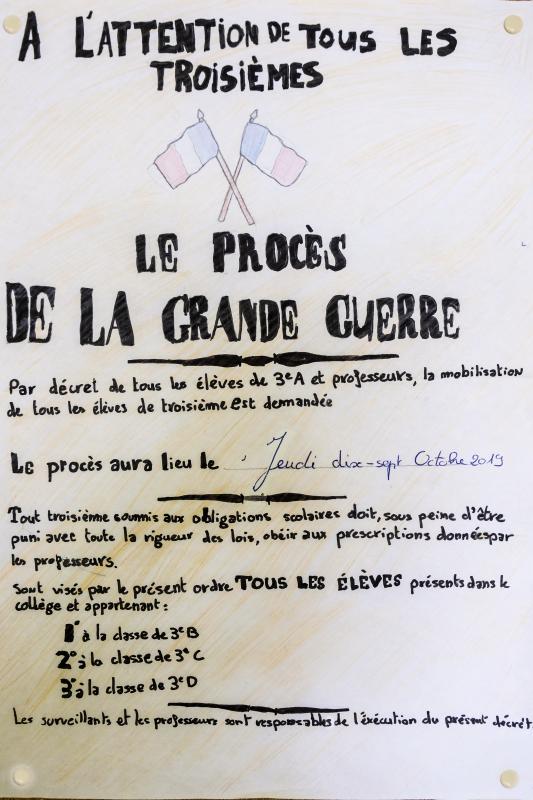 A L'ATTENTION DE TOUS LES
TROISIÈMES
LE PROCÈS
DE LA GRANDE GUERRE
Par décret de tous les élèves de 3eA et professeurs, la mobilisation
de tous les élèves de troisième est demandée
Le procès aura lieu le Jeudi dix-sept Octobre 2019
Tout troisième soumis aux obligations scolaires doit, sous peine d'être
puni avec toute la rigueur des lois, obéir aux prescriptions données par
les professeurs.
Sont visés par le présent ordre TOUS LES ÉLÈVES présents dans le
collège et appartenant :
1° à la classe de 3eB
2° à la classe de 3eC
3° à la classe de 3eD
Les surveillants et les professeurs sont responsables de l'éxécution du présent décret.